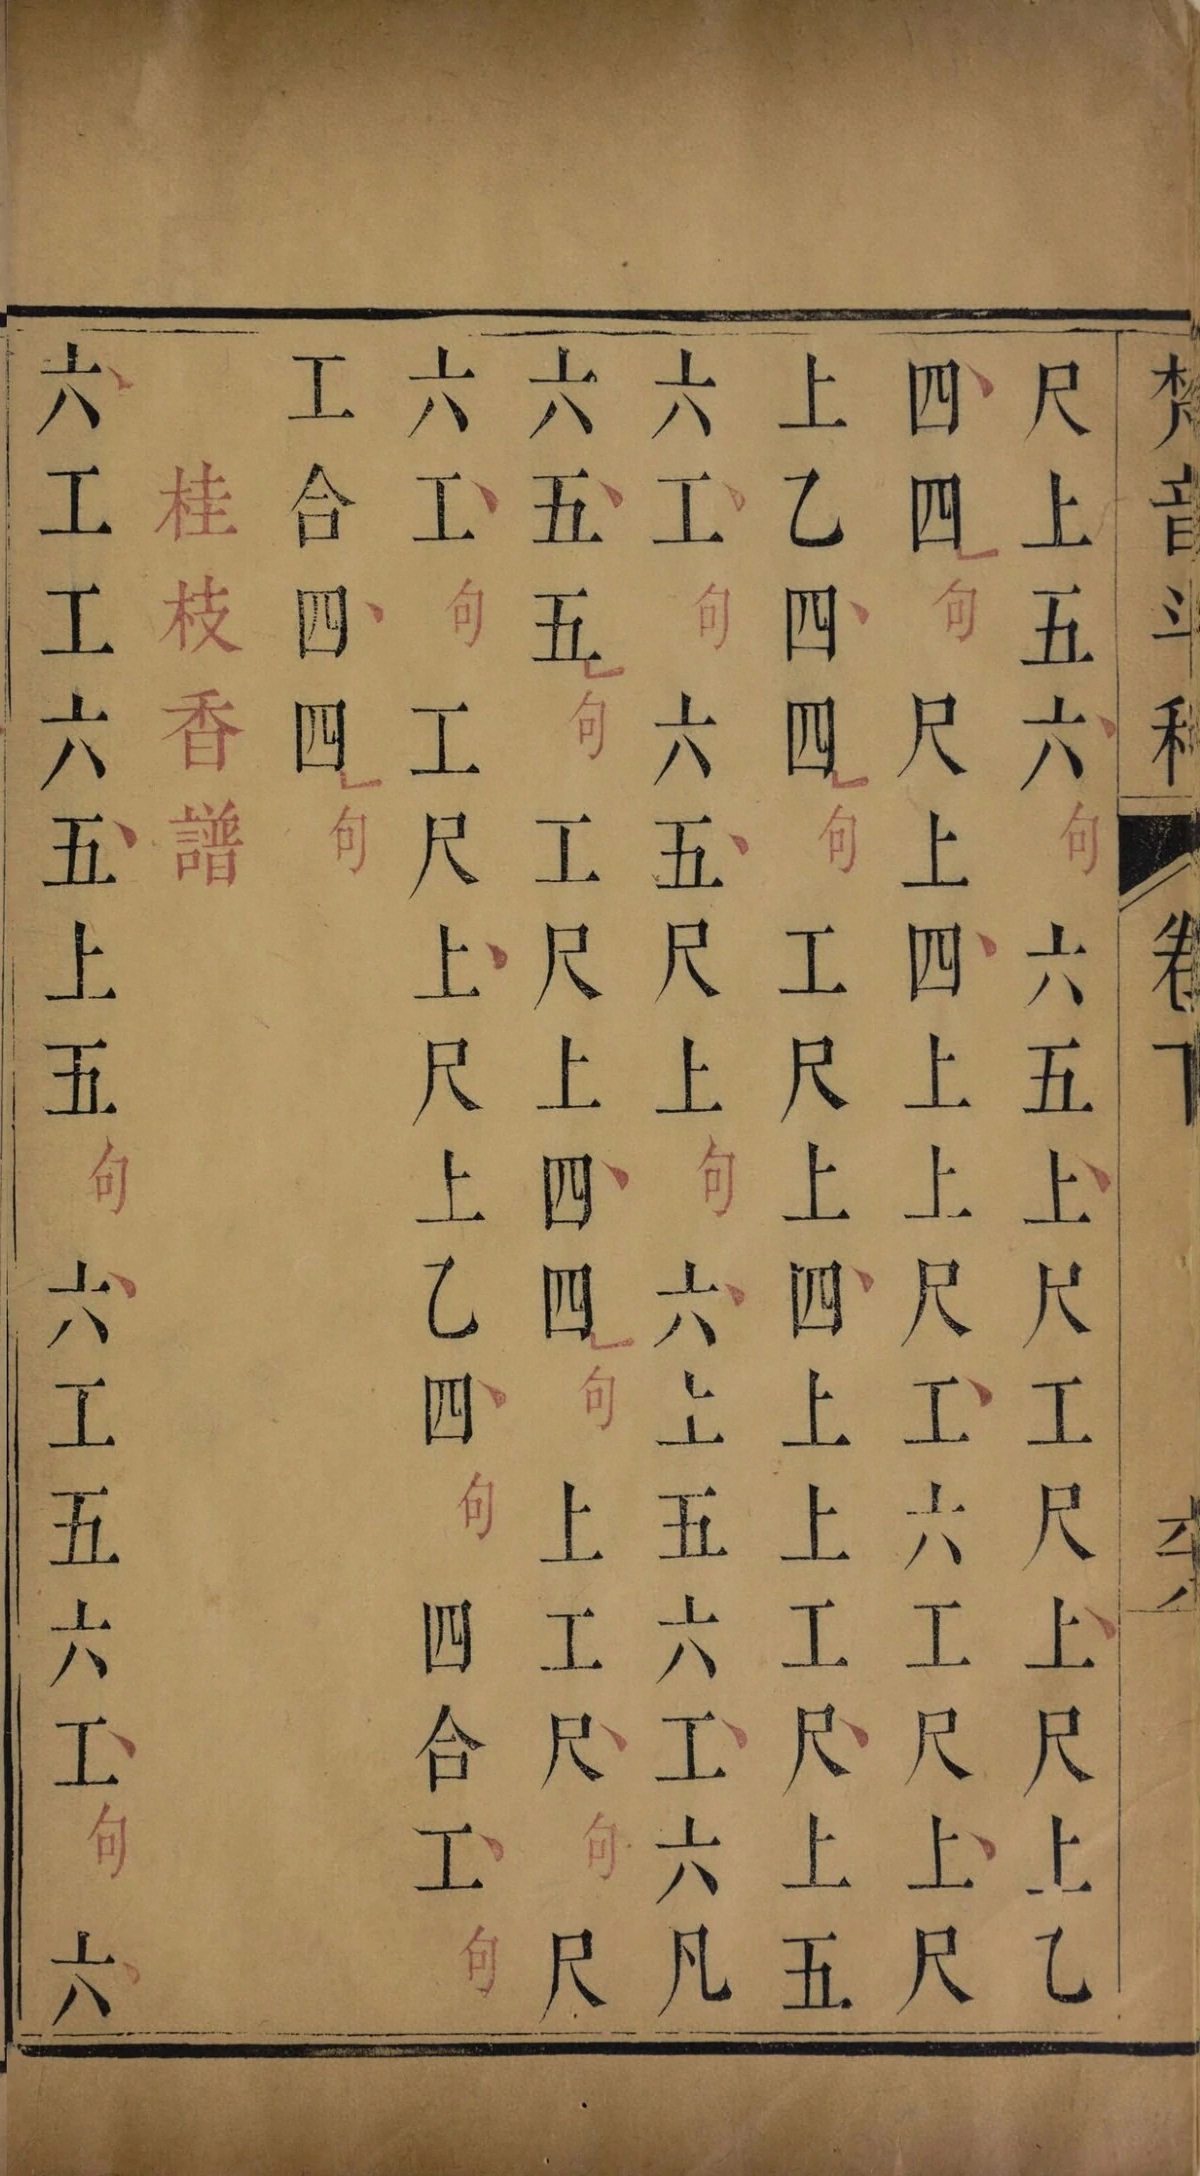 梵音斗科 卷下
尺上五六句六五上尺工尺上尺上乙
四四句尺上四上上尺工六工尺上尺
上乙四四句工尺上四上上工尺上五
六工句六五尺上句六上五六工六凡
六五五句工尺上四四句上工尺句尺
六工句工尺上尺上乙四句四合工句
工合四四句
桂枝香譜
六工工六五上五句六工五六工句六